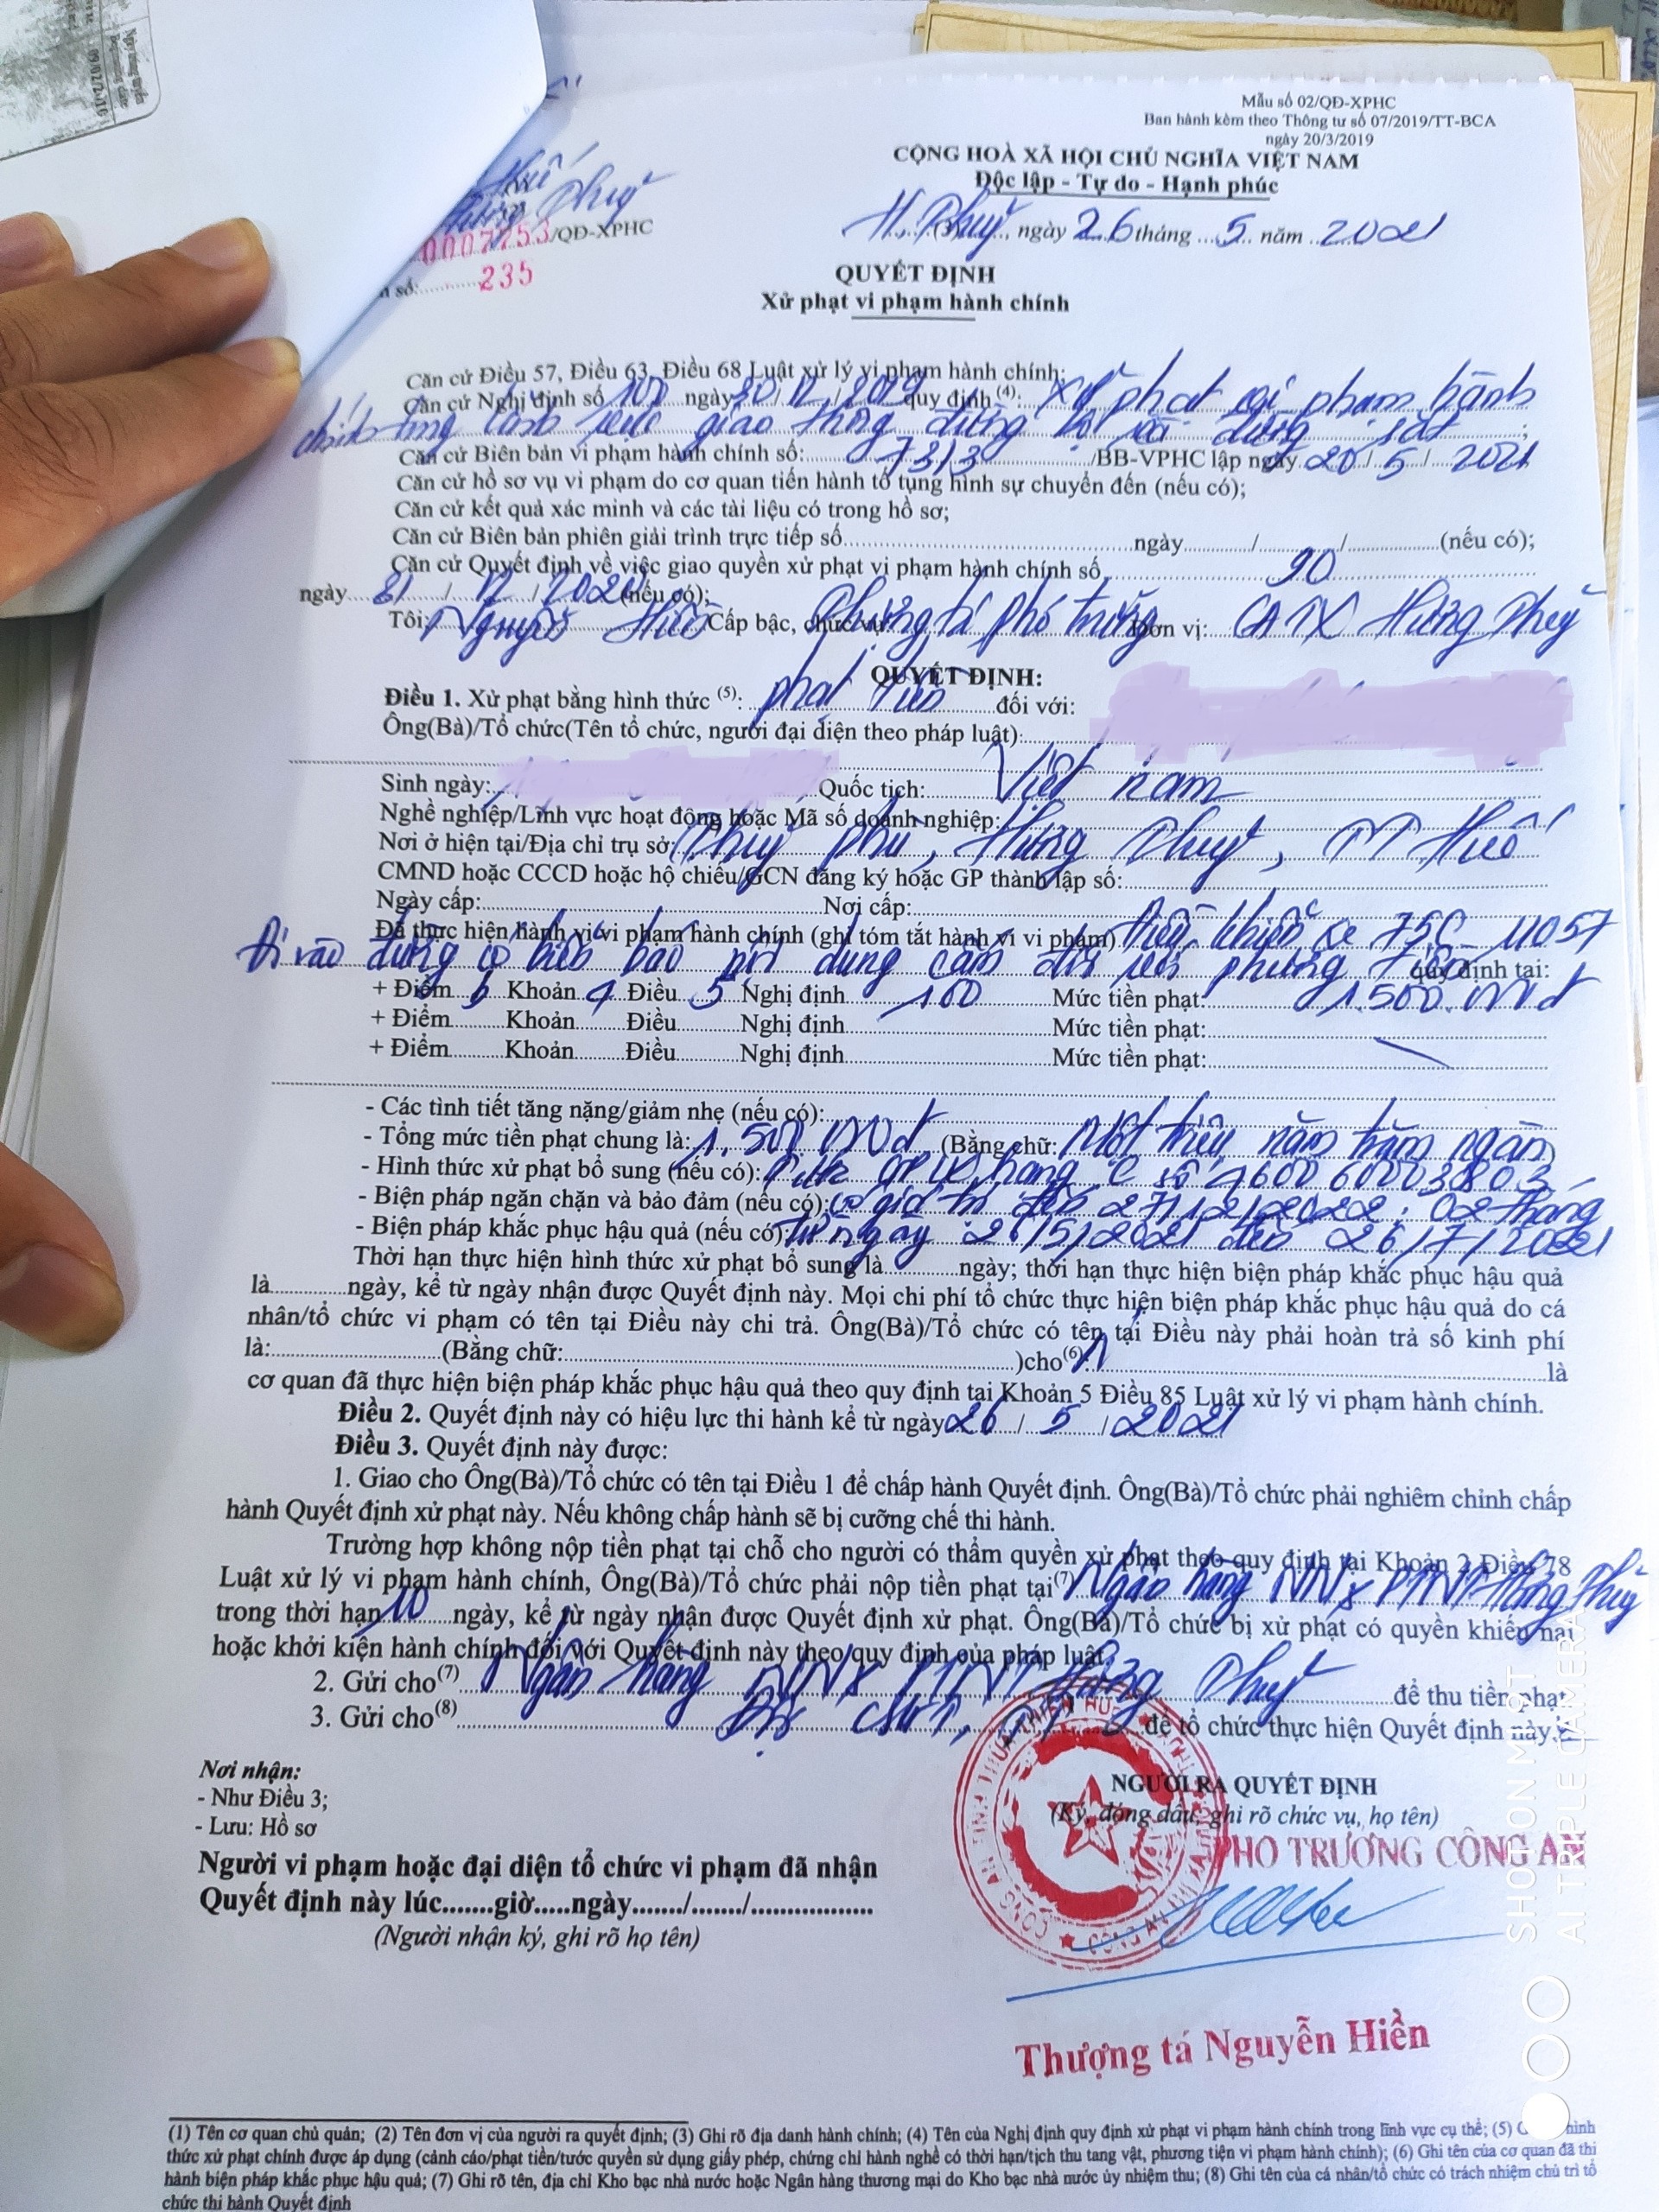 Mẫu số 02/QĐ-XPHC
Ban hành kèm theo Thông tư số 07/2019/TT-BCA
ngày 20/3/2019
CỘNG HOÀ XÃ HỘI CHỦ NGHĨA VIỆT NAM
Độc lập - Tự do - Hạnh phúc
Huế
Hương Thuỷ
0007753/QĐ-XPHC
số: 235
H. Thuỷ, ngày 26 tháng 5 năm 2021
QUYẾT ĐỊNH
Xử phạt vi phạm hành chính
Căn cứ Điều 57, Điều 63, Điều 68 Luật xử lý vi phạm hành chính;
Căn cứ Nghị định số 100 ngày 30/12/2019 quy định (4): Xử phạt vi phạm hành
chính trong lĩnh vực giao thông đường bộ và đường sắt;
Căn cứ Biên bản vi phạm hành chính số: 7313/BB-VPHC lập ngày 20/5/2021
Căn cứ hồ sơ vụ vi phạm do cơ quan tiến hành tố tụng hình sự chuyển đến (nếu có);
Căn cứ kết quả xác minh và các tài liệu có trong hồ sơ;
Căn cứ Biên bản phiên giải trình trực tiếp số ngày / / (nếu có);
Căn cứ Quyết định về việc giao quyền xử phạt vi phạm hành chính số 90
ngày 31/12/2020 (nếu có);
Tôi: Nguyễn Hiền Cấp bậc, chức vụ: Thượng tá phó trưởng Đơn vị: CATX Hương Thuỷ
QUYẾT ĐỊNH:
Điều 1. Xử phạt bằng hình thức (5): phạt tiền đối với:
Ông(Bà)/Tổ chức(Tên tổ chức, người đại diện theo pháp luật):
Sinh ngày: Quốc tịch: Việt nam
Nghề nghiệp/Lĩnh vực hoạt động hoặc Mã số doanh nghiệp:
Nơi ở hiện tại/Địa chỉ trụ sở: Thuỷ phù, Hương Thuỷ, TT Huế
CMND hoặc CCCD hoặc hộ chiếu/GCN đăng ký hoặc GP thành lập số:
Ngày cấp: Nơi cấp:
Đã thực hiện hành vi vi phạm hành chính (ghi tóm tắt hành vi vi phạm) điều khiển xe 75C-11057
Đi vào đường có biển báo nội dung cấm đối với phương tiện quy định tại:
+ Điểm b Khoản 4 Điều 5 Nghị định 100 Mức tiền phạt: 1.500.000đ
+ Điểm Khoản Điều Nghị định Mức tiền phạt:
+ Điểm Khoản Điều Nghị định Mức tiền phạt:
- Các tình tiết tăng nặng/giảm nhẹ (nếu có):
- Tổng mức tiền phạt chung là: 1.500.000đ (Bằng chữ: Một triệu năm trăm ngàn)
- Hình thức xử phạt bổ sung (nếu có): GPLX hạng C số 460060003803
- Biện pháp ngăn chặn và bảo đảm (nếu có): có giá trị đến 27/12/2022: 02 tháng
- Biện pháp khắc phục hậu quả (nếu có) từ ngày 26/5/2021 đến 26/7/2021
Thời hạn thực hiện hình thức xử phạt bổ sung là ngày; thời hạn thực hiện biện pháp khắc phục hậu quả
là ngày, kể từ ngày nhận được Quyết định này. Mọi chi phí tổ chức thực hiện biện pháp khắc phục hậu quả do cá
nhân/tổ chức vi phạm có tên tại Điều này chi trả. Ông(Bà)/Tổ chức có tên tại Điều này phải hoàn trả số kinh phí
là: (Bằng chữ: )cho(6) là
cơ quan đã thực hiện biện pháp khắc phục hậu quả theo quy định tại Khoản 5 Điều 85 Luật xử lý vi phạm hành chính.
Điều 2. Quyết định này có hiệu lực thi hành kể từ ngày 26/5/2021
Điều 3. Quyết định này được:
1. Giao cho Ông(Bà)/Tổ chức có tên tại Điều 1 để chấp hành Quyết định. Ông(Bà)/Tổ chức phải nghiêm chỉnh chấp
hành Quyết định xử phạt này. Nếu không chấp hành sẽ bị cưỡng chế thi hành.
Trường hợp không nộp tiền phạt tại chỗ cho người có thẩm quyền xử phạt theo quy định tại Khoản 2 Điều 78
Luật xử lý vi phạm hành chính, Ông(Bà)/Tổ chức phải nộp tiền phạt tại(7) Ngân hàng NN& PTNT Hương Thuỷ
trong thời hạn 10 ngày, kể từ ngày nhận được Quyết định xử phạt. Ông(Bà)/Tổ chức bị xử phạt có quyền khiếu nại
hoặc khởi kiện hành chính đối với Quyết định này theo quy định của pháp luật.
2. Gửi cho(7) Ngân hàng NN& PTNT Hương Thuỷ để thu tiền phạt
3. Gửi cho(8) để tổ chức thực hiện Quyết định này.
Nơi nhận:
- Như Điều 3;
- Lưu: Hồ sơ
NGƯỜI RA QUYẾT ĐỊNH
(Ký, đóng dấu, ghi rõ chức vụ, họ tên)
PHÓ TRƯỞNG CÔNG AN
Người vi phạm hoặc đại diện tổ chức vi phạm đã nhận
Quyết định này lúc.......giờ.....ngày......./......./.................
(Người nhận ký, ghi rõ họ tên)
Thượng tá Nguyễn Hiền
SHOT ON MI 9T
AI TRIPLE CAMERA
(1) Tên cơ quan chủ quản; (2) Tên đơn vị của người ra quyết định; (3) Ghi rõ địa danh hành chính; (4) Tên của Nghị định quy định xử phạt vi phạm hành chính trong lĩnh vực cụ thể; (5) hình
thức xử phạt chính được áp dụng (cảnh cáo/phạt tiền/tước quyền sử dụng giấy phép, chứng chỉ hành nghề có thời hạn/tịch thu tang vật, phương tiện vi phạm hành chính); (6) Ghi tên của cơ quan đã thi
hành biện pháp khắc phục hậu quả; (7) Ghi rõ tên, địa chỉ Kho bạc nhà nước hoặc Ngân hàng thương mại do Kho bạc nhà nước ủy nhiệm thu; (8) Ghi tên của cá nhân/tổ chức có trách nhiệm chủ trì tổ
chức thi hành Quyết định